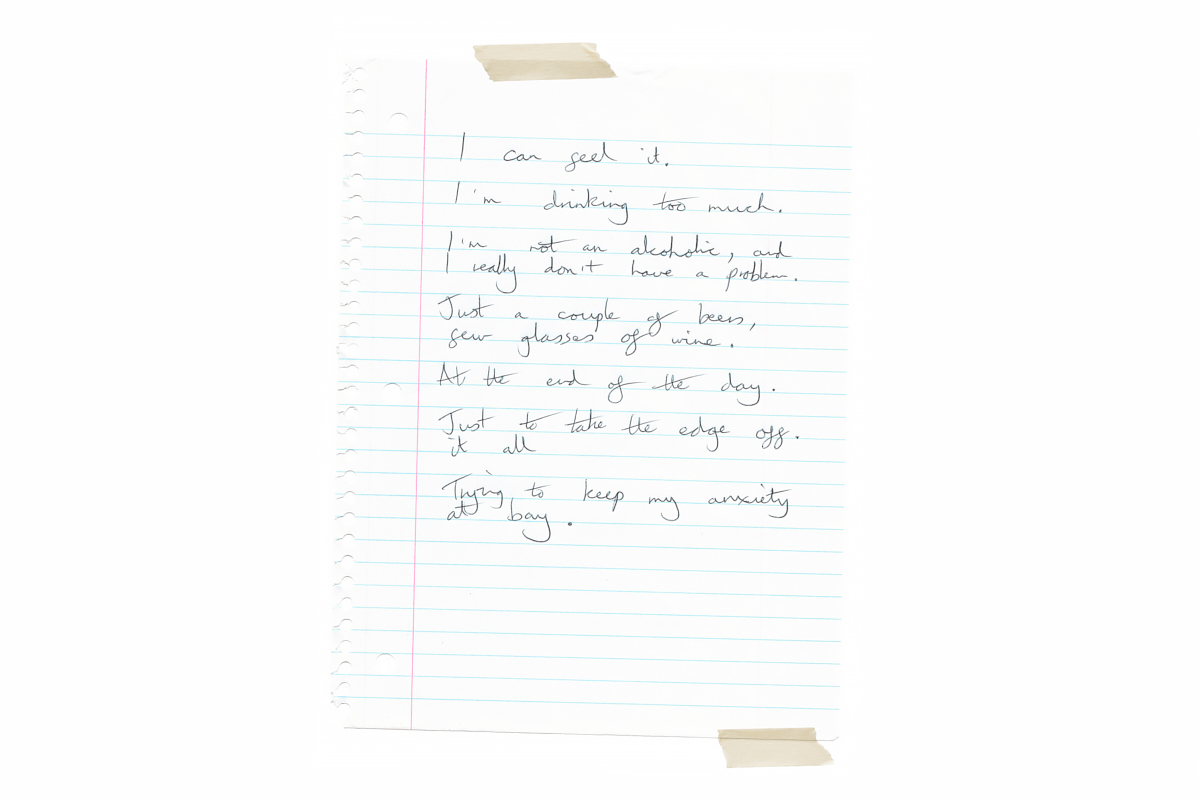 I can feel it.
I'm drinking too much.
I'm not an alcoholic, and
I really don't have a problem.
Just a couple of beers,
few glasses of wine.
At the end of the day.
Just to take the edge off.
it all
Trying to keep my anxiety
at bay.